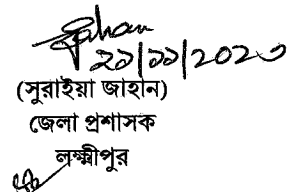 ২১/১১/২০২৩
(সুরাইয়া জাহান)
জেলা প্রশাসক
লক্ষ্মীপুর